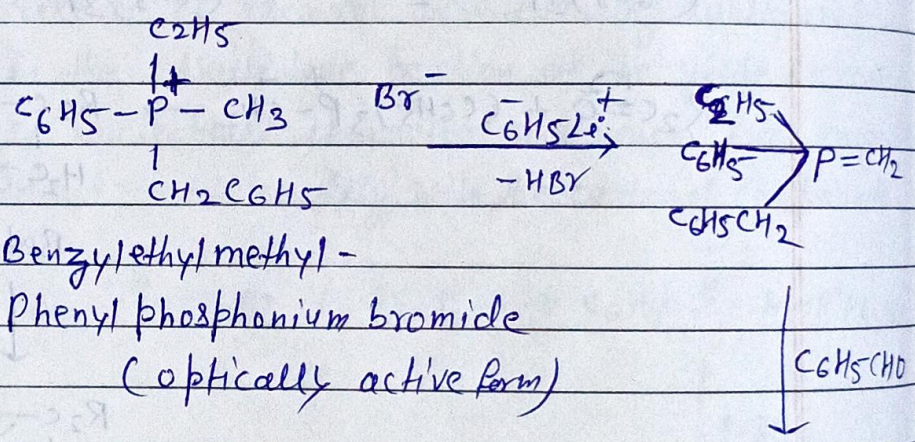 C2H5
|+
C6H5 - P - CH3 Br⁻ C6H5⁻Li⁺ C2H5
C6H5 P=CH2
| -HBr
CH2C6H5 C6H5CH2
Benzylethylmethyl-
Phenyl phosphonium bromide
(optically active form) C6H5CHO